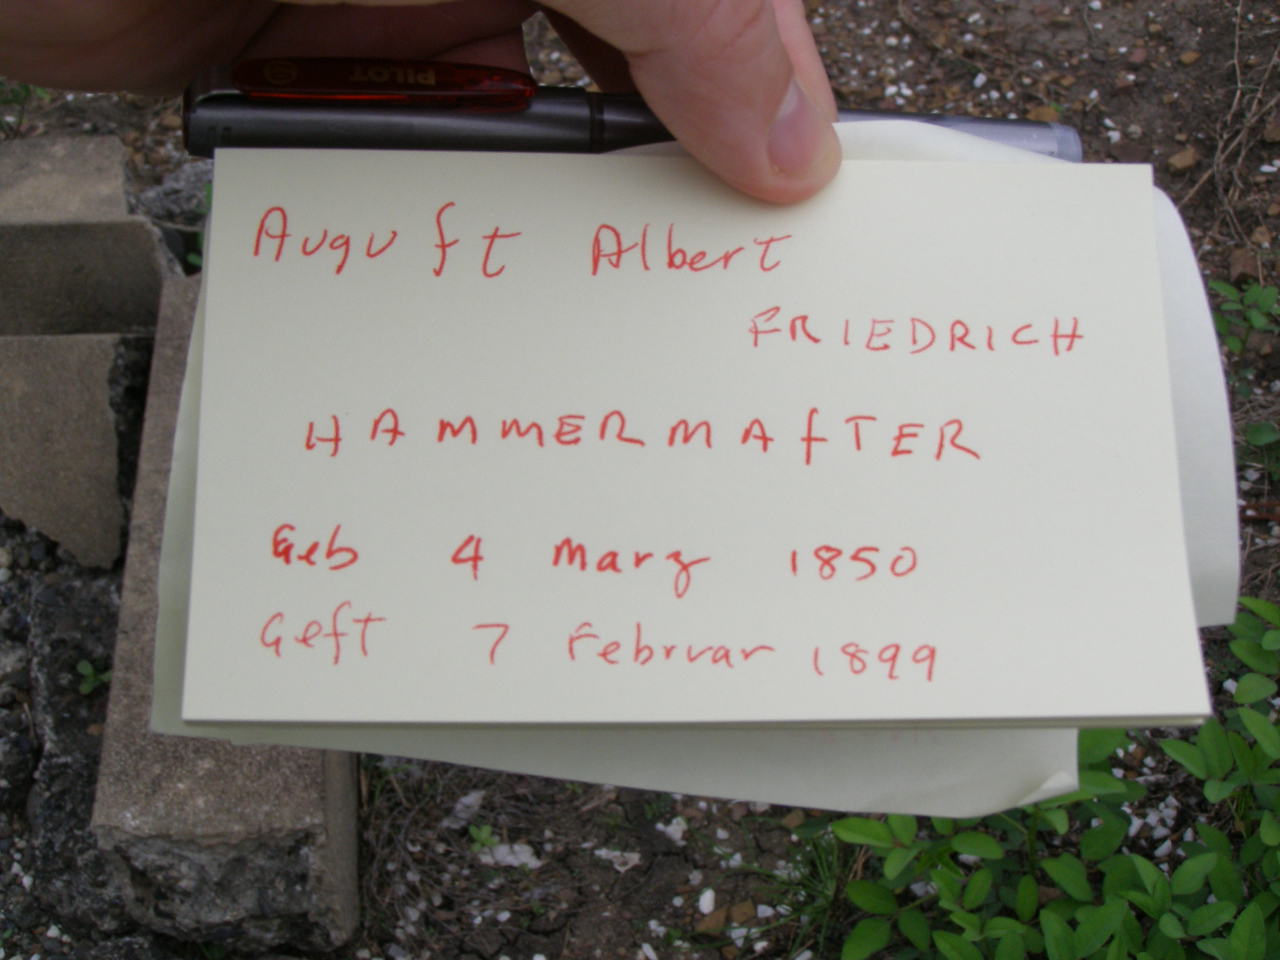 PILOT
Auguſt Albert
FRIEDRICH
HAMMERMAſTER
Geb 4 Marz 1850
Geſt 7 Februar 1899